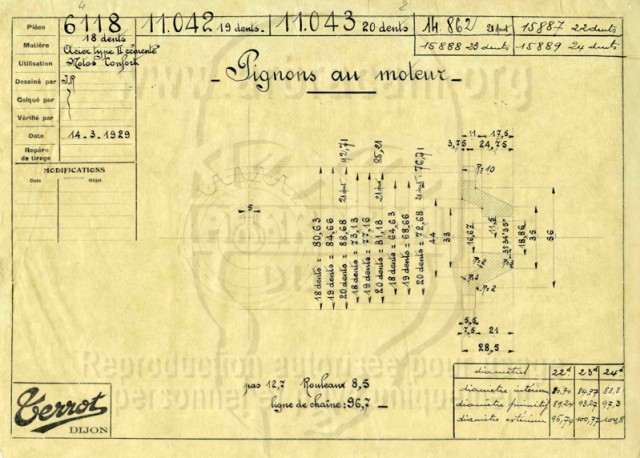 Pièce 6118 11.042 19 dents 11.043 20 dents 14.862 21 dents 15887 22 dents
18 dents
15888 23 dents 15889 24 dents
Matière Acier type II cémenté
Utilisation Motos Confort
Dessiné par J.R
Calqué par
Vérifié par
Date 14-3-1929
Repère de tirage
MODIFICATIONS
Date Objet
- Pignons au moteur -
11 17,5
3,75 24,75
42,71
85,21
76,71
R=10
5
18 dents = 80,63
19 dents = 84,66
20 dents = 88,68
18 dents = 73,13
19 dents = 77,16
20 dents = 81,18
18 dents = 64,63
19 dents = 68,66
20 dents = 72,68
44
33
16,67
11,5
18,86
35
56
R=2
5,5
7,5 21
28,5
pas 12,7 Rouleaux 8,5
ligne de chaîne : 96,7
diamètres 22d 23d 24d
diamètre intérieur 84,77 88,8
diamètre primitif 89,24 93,27 97,3
diamètre extérieur 96,74 100,77 104,8
Terrot
DIJON
Reproduction autorisée pour usage
personnel